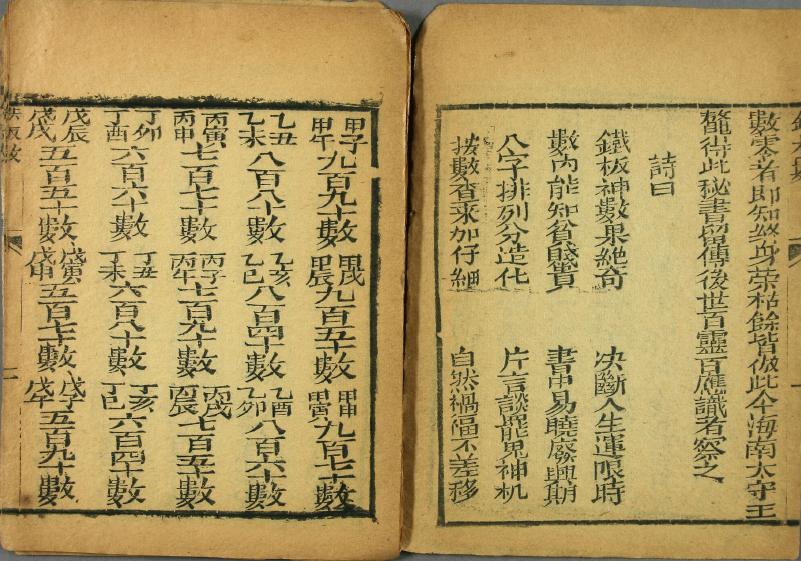 數零者即知終身荣枯餘皆倣此今海南太守王
鰲得此秘書留傳後世百靈百應識者察之
詩曰
鐵板神數果絶奇 决斷人生運限時
數內能知貧賤貴 書中易曉廢興期
八字排列分造化 片言談罷鬼神机
按數查來加仔細 自然禍福不差移
甲子甲午九百九十數 甲戌甲辰九百五十數 甲申甲寅九百七十數
乙丑乙未八百八十數 乙亥乙巳八百四十數 乙酉乙卯八百六十數
丙寅丙申七百七十數 丙子丙午七百九十數 丙戌丙辰七百五十數
丁卯丁酉六百六十數 丁丑丁未六百八十數 丁亥丁巳六百四十數
戊辰戊戌五百五十數 戊寅戊申五百七十數 戊子戊午五百九十數